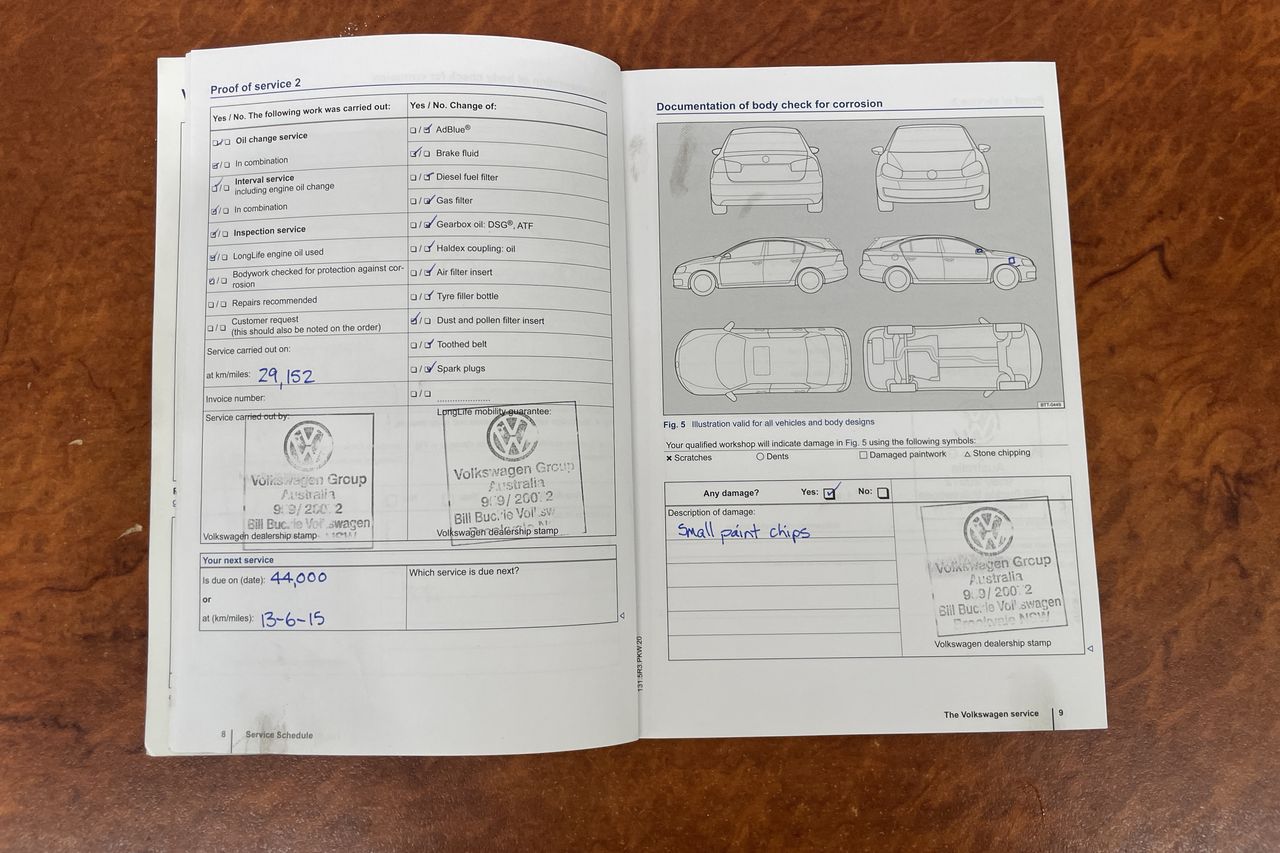 Proof of service 2
Yes / No. The following work was carried out:
Oil change service
In combination
Interval service
including engine oil change
In combination
Inspection service
LongLife engine oil used
Bodywork checked for protection against cor-
rosion
Repairs recommended
Customer request
(this should also be noted on the order)
Service carried out on:
at km/miles: 29,152
Invoice number:
Service carried out by:
Volkswagen Group
Australia
Volkswagen dealership stamp
Yes / No. Change of:
AdBlue®
Brake fluid
Diesel fuel filter
Gas filter
Gearbox oil: DSG®, ATF
Haldex coupling: oil
Air filter insert
Tyre filler bottle
Dust and pollen filter insert
Toothed belt
Spark plugs
LongLife mobility guarantee:
Volkswagen Group
Australia
Volkswagen dealership stamp
Your next service
Is due on (date): 44,000
or
at (km/miles): 13-6-15
Which service is due next?
8 Service Schedule
131.5R3.PKW.20
Documentation of body check for corrosion
Fig. 5 Illustration valid for all vehicles and body designs
Your qualified workshop will indicate damage in Fig. 5 using the following symbols:
× Scratches ○ Dents □ Damaged paintwork △ Stone chipping
Any damage? Yes: No:
Description of damage:
Small paint chips
Volkswagen Group
Australia
Brookvale NSW
Volkswagen dealership stamp
The Volkswagen service 9